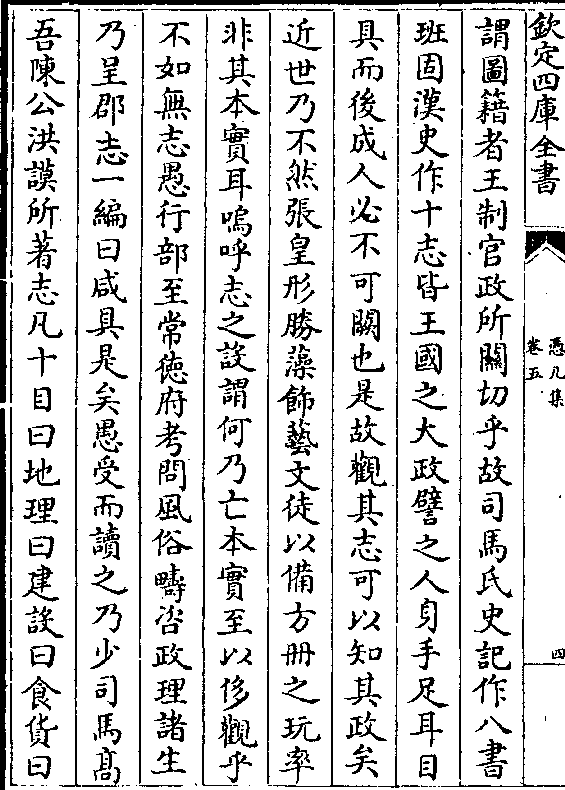 欽定四庫全書
憑几集
卷五
四
謂圖籍者王制官政所關切乎故司馬氏史記作八書
班固漢史作十志皆王國之大政譬之人身手足耳目
具而後成人必不可闕也是故觀其志可以知其政矣
近世乃不然張皇形勝藻飾藝文徒以備方冊之玩率
非其本實耳嗚呼志之設謂何乃亡本實至以侈觀乎
不如無志愚行部至常徳府考問風俗疇咨政理諸生
乃呈郡志一編曰咸具是矣愚受而讀之乃少司馬髙
吾陳公洪謨所著志凡十目曰地理曰建設曰食貨曰